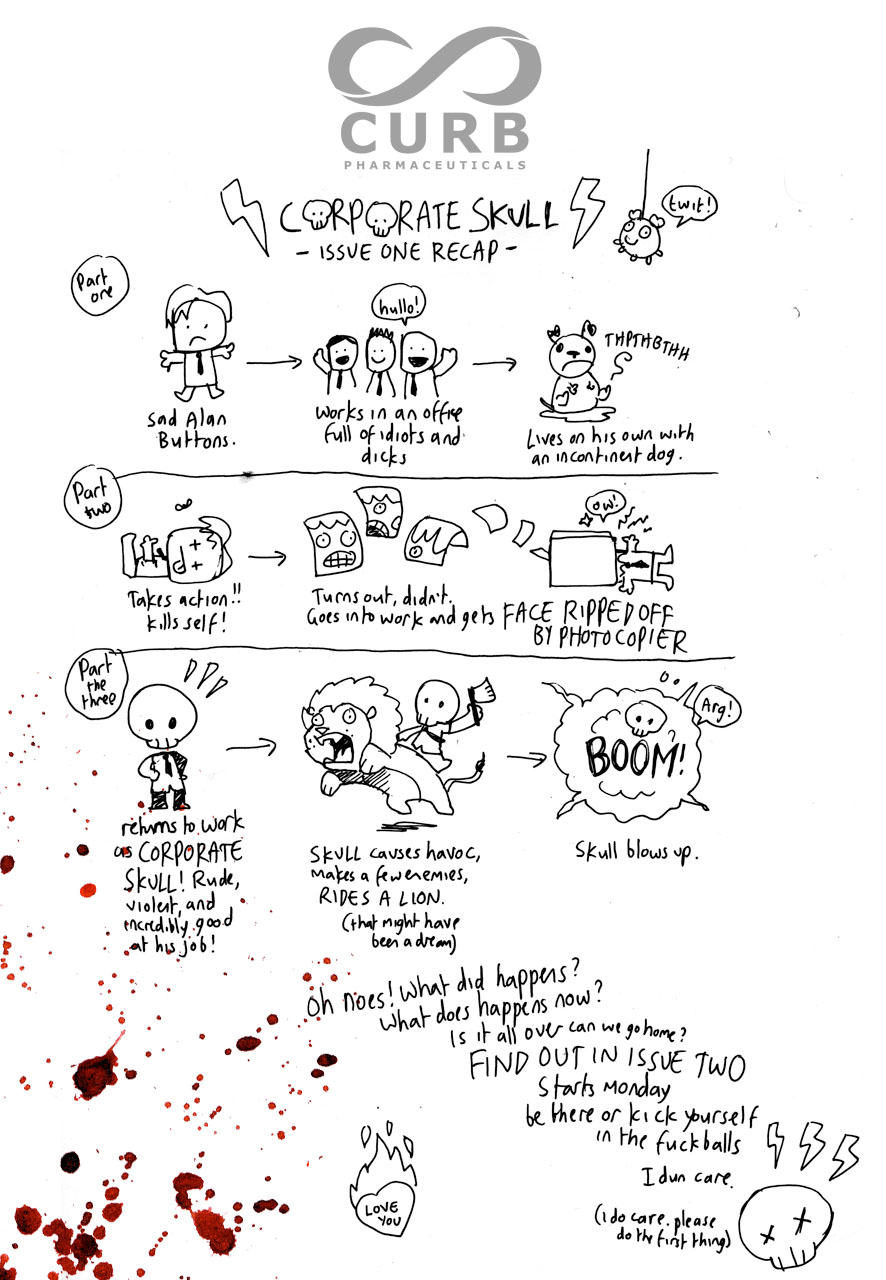 CURB
PHARMACEUTICALS
CORPORATE SKULL
- ISSUE ONE RECAP -
twit!
Part
one
hullo!
THPTHBTHH
Sad Alan
Buttons.
Works in an office
full of idiots and
dicks
Lives on his own with
an incontinent dog.
Part
two
OW!
Takes action!!
kills self!
Turns out, didn't.
Goes into work and gets FACE RIPPED OFF
BY PHOTOCOPIER
Part
the
three
Arg!
BOOM!
returns to work
as CORPORATE
SKULL! Rude,
violent, and
incredibly good
at his job!
SKULL causes havoc,
makes a few enemies,
RIDES A LION.
(that might have
been a dream)
Skull blows up.
Oh noes! What did happens?
What does happens now?
Is it all over can we go home?
FIND OUT IN ISSUE TWO
Starts Monday
be there or kick yourself
in the fuckballs
I dun care.
(I do care. please
do the first thing)
LOVE
YOU